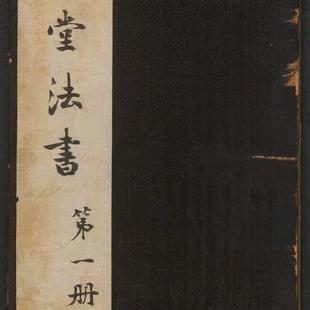 堂法書
第一册